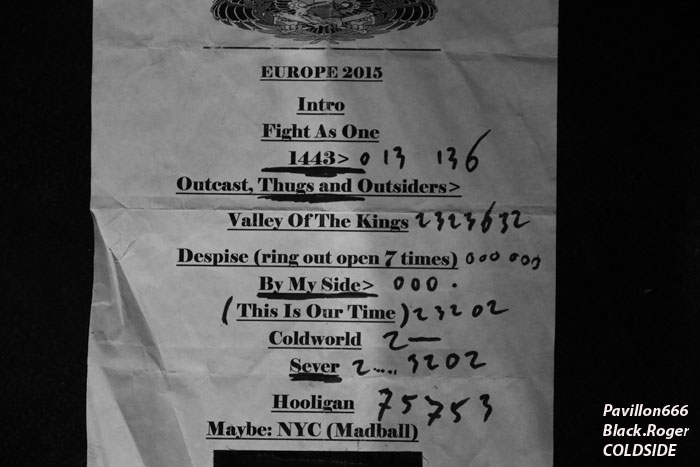 EUROPE 2015
Intro
Fight As One
1443> 013 136
Outcast, Thugs and Outsiders>
Valley Of The Kings 2323632
Despise (ring out open 7 times) 000 000
By My Side> 000.
(This Is Our Time) 23202
Coldworld 2—
Sever 2.... 3202
Hooligan 75753
Maybe: NYC (Madball)
Pavillon666
Black.Roger
COLDSIDE